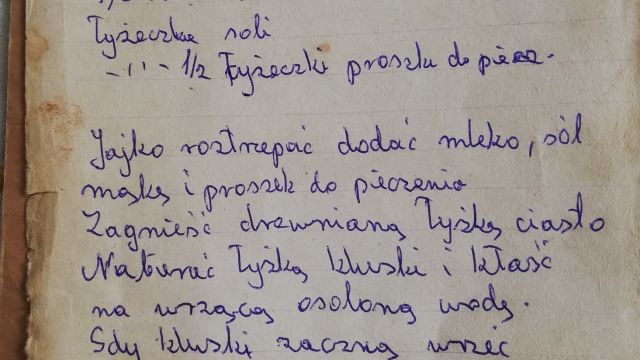 łyżeczka soli
-"- 1/2 łyżeczki proszku do piecz.
Jajko roztrzepać dodać mleko, sól
mąkę i proszek do pieczenia
Zagnieść drewnianą łyżką ciasto
Nabierać łyżką kluski i kłaść
na wrzącą osoloną wodę.
Gdy kluski zaczną wrzeć